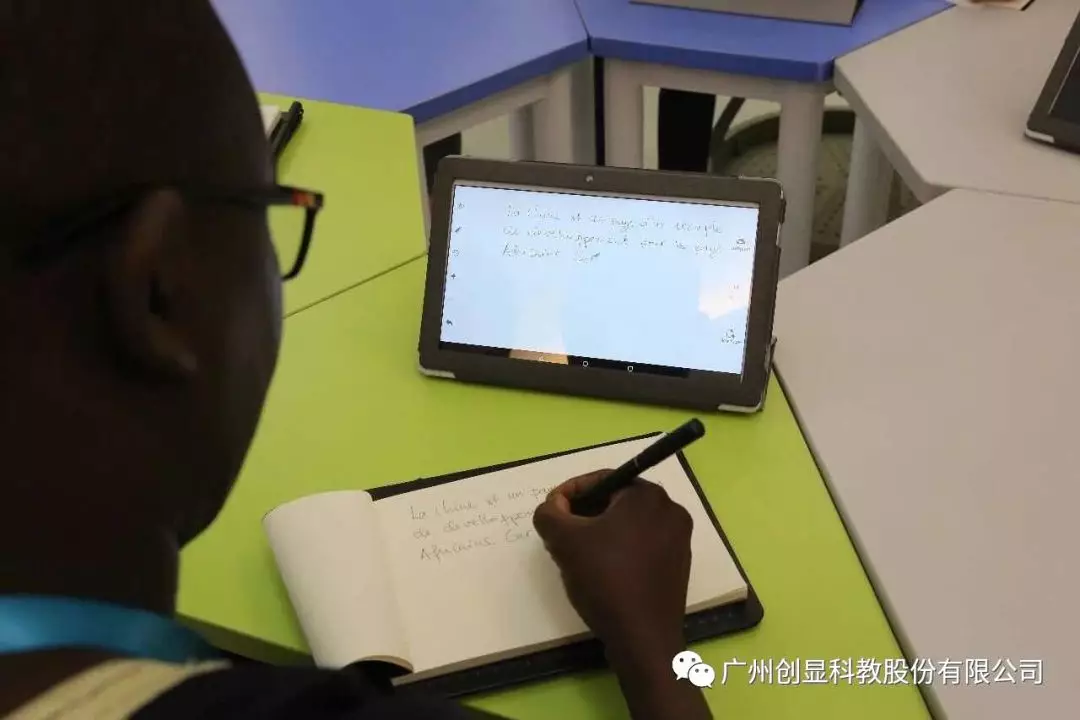 La Chine est un pays d'un exemple
de développement pour les pays
Africains Car
La Chine est un pay
de développemen
Africains. Car
广州创显科教股份有限公司